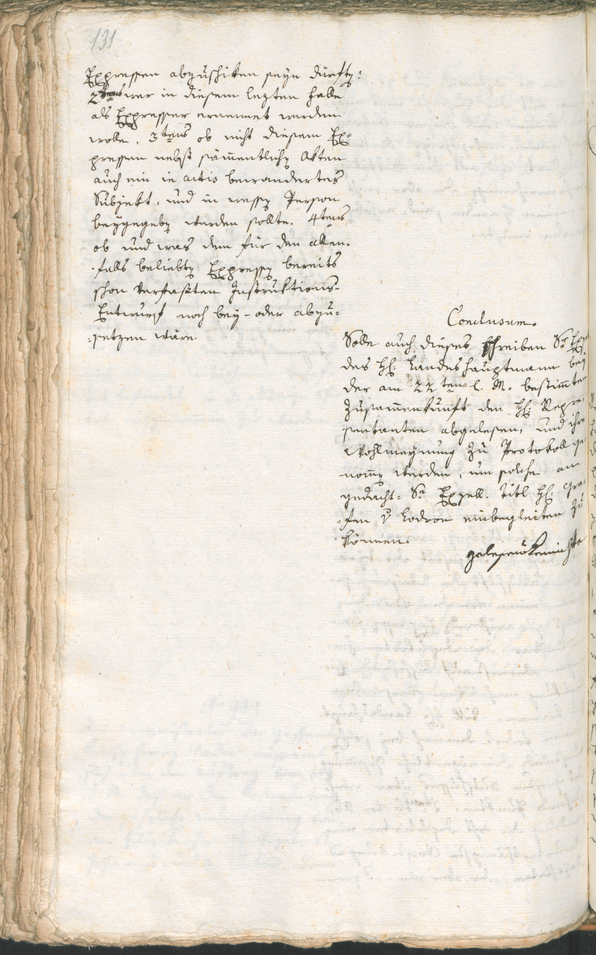 131
Expressen abzuschiken seyn dürfte,
2tens wer in diesem lezten falle
als Expresser ernennet werden
wolle. 3tens ob nicht diesem Ex-
pressen nebst sämmentlichen Akten
auch ein in actis bewandertes
Subjekt, und in wessen Person
beygegeben werden sollte. 4tens
ob und was dem für den allen-
falls beliebten Expressen bereits
schon verfasten Instruktions-
Entwurf noch bey- oder abzu-
setzen wäre
Conclusum.
Solle auch dieses Schreiben Sr Exzell
des H. Landeshauptmann bey
der am 22ten l. M. bestimmten
Zusammenkunft den H. Repre-
sentanten abgelesen, und ihre
Wohlmeynung zu Protokoll ge-
nommen werden, um solche an
gedacht: Sr Exzell. Titl H. Gra-
fen v Lodron einbegleiten zu
können.
gelesen